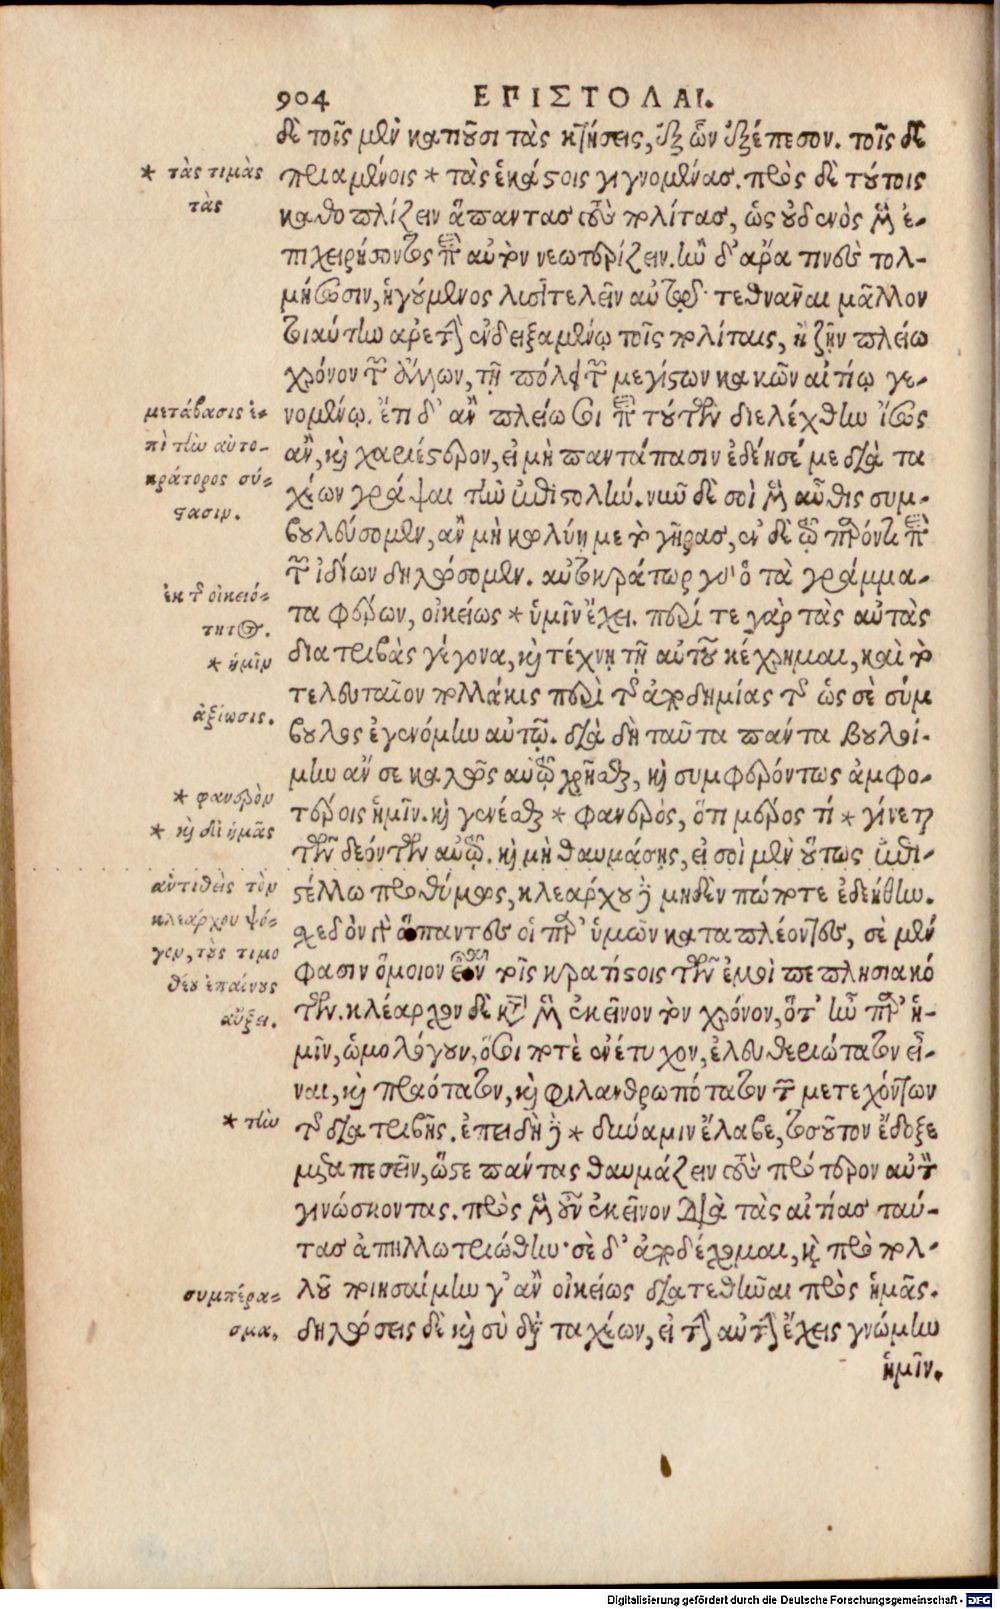 904 ΕΠΙΣΤΟΛΑΙ.
δὲ τοῖς μὲν κατιοῦσι τὰς κτήσεις, ἐξ ὧν ἐξέπεσον. τοῖς δὲ
πριαμένοις * τὰς ἑκάστοις γιγνομένας. πρὸς δὲ τούτοις
καθοπλίζειν ἅπαντας τοὺς πολίτας, ὡς οὐδενὸς ἔτι ἐ-
πιχειρήσοντος ἐπ' αὐτὸν νεωτερίζειν. ἢν δ' ἄρα τινὲς τολ-
μήσωσιν, ἡγούμενος λυσιτελεῖν αὐτῷ τεθνᾶναι μᾶλλον
τοιαύτην ἀρετὴν ἐνδειξαμένῳ τοῖς πολίταις, ἢ ζῆν πλείω
χρόνον τῶν ἄλλων, τῇ πόλει τῶν μεγίστων κακῶν αἰτίῳ γε-
νομένῳ. ἔτι δ' ἂν πλείω σοι περὶ τούτων διελέχθην ἴσως
ἂν, καὶ χαριέστερον, εἰ μὴ παντάπασιν ἐδέησέ με διὰ τα
χέων γράψαι τὴν ἐπιστολήν. νῦν δὲ σοὶ ἔτι αὖθις συμ-
βουλεύσομεν, ἂν μὴ κωλύῃ με τὸ γῆρας, ἐν δὲ τῷ παρόντι περὶ
τῶν ἰδίων δηλώσομεν. αὐτοκράτωρ γὰρ ὁ τὰ γράμμα-
τα φέρων, οἰκείως * ὑμῖν ἔχει. περί τε γὰρ τὰς αὐτὰς
διατριβὰς γέγονα, καὶ τέχνῃ τῇ αὐτοῦ κέχρημαι, καὶ τὸ
τελευταῖον πολλάκις περὶ τῆς ἀποδημίας τῆς ὡς σὲ σύμ
βουλος ἐγενόμην αὐτῷ. διὰ δὴ ταῦτα πάντα βουλοί-
μην ἄν σε καλῶς αὐτῷ χρῆσθαι, καὶ συμφερόντως ἀμφο-
τέροις ἡμῖν. καὶ γενέσθαι * φανερὸς, ὅτι μέρος τι * γίνεται
τῶν δεόντων αὐτῷ. καὶ μὴ θαυμάσῃς, εἰ σοὶ μὲν οὕτως ἐπι-
στέλλω προθύμως, κλεάρχου δὲ μηδὲν πώποτε ἐδεήθην.
σχεδὸν γὰρ ἅπαντες οἱ παρ' ὑμῶν καταπλέοντες, σὲ μὲν
φασὶν ὅμοιον εἶναι τοῖς κρατίστοις τῶν ἐμοὶ πεπλησιακό
των. κλέαρχον δὲ κατ' ἐκεῖνον τὸν χρόνον, ὅτ' ἦν παρ' ἡ-
μῖν, ὡμολόγουν, ὅσοι ποτὲ ἐνέτυχον, ἐλευθεριώτατον εἶ-
ναι, καὶ πραότατον, καὶ φιλανθρωπότατον τῶν μετεχόντων
τῆς διατριβῆς. ἐπειδὴ δὲ * δύναμιν ἔλαβε, τοσοῦτον ἔδοξε
μεταπεσεῖν, ὥστε πάντας θαυμάζειν τοὺς πρότερον αὐτὸν
γινώσκοντας. πρὸς μὲν οὖν ἐκεῖνον διὰ τὰς αἰτίας ταύ-
τας ἀπηλλοτριώθην· σὲ δ' ἀποδέχομαι, καὶ πρὸ πολ-
λοῦ ποιησαίμην γ' ἂν οἰκείως διατεθῆναι πρὸς ἡμᾶς.
δηλώσεις δὲ καὶ σὺ διὰ ταχέων, εἰ τὴν αὐτὴν ἔχεις γνώμην
ἡμῖν.
* τὰς τιμὰς
τὰς
μετάβασις ἐ-
πὶ τὴν αὐτο-
κράτορος σύ-
στασιν.
ἐκ τῆς οἰκειό-
τητος.
* ἡμῖν
ἀξίωσις.
* φανερὸν
* καὶ δι' ἡμᾶς
ἀντιθεὶς τὸν
κλεάρχου ψό-
γον, τοὺς τιμο
θέου ἐπαίνους
αὔξει.
* τὴν
συμπέρα-
σμα,
Digitalisierung gefördert durch die Deutsche Forschungsgemeinschaft - DFG